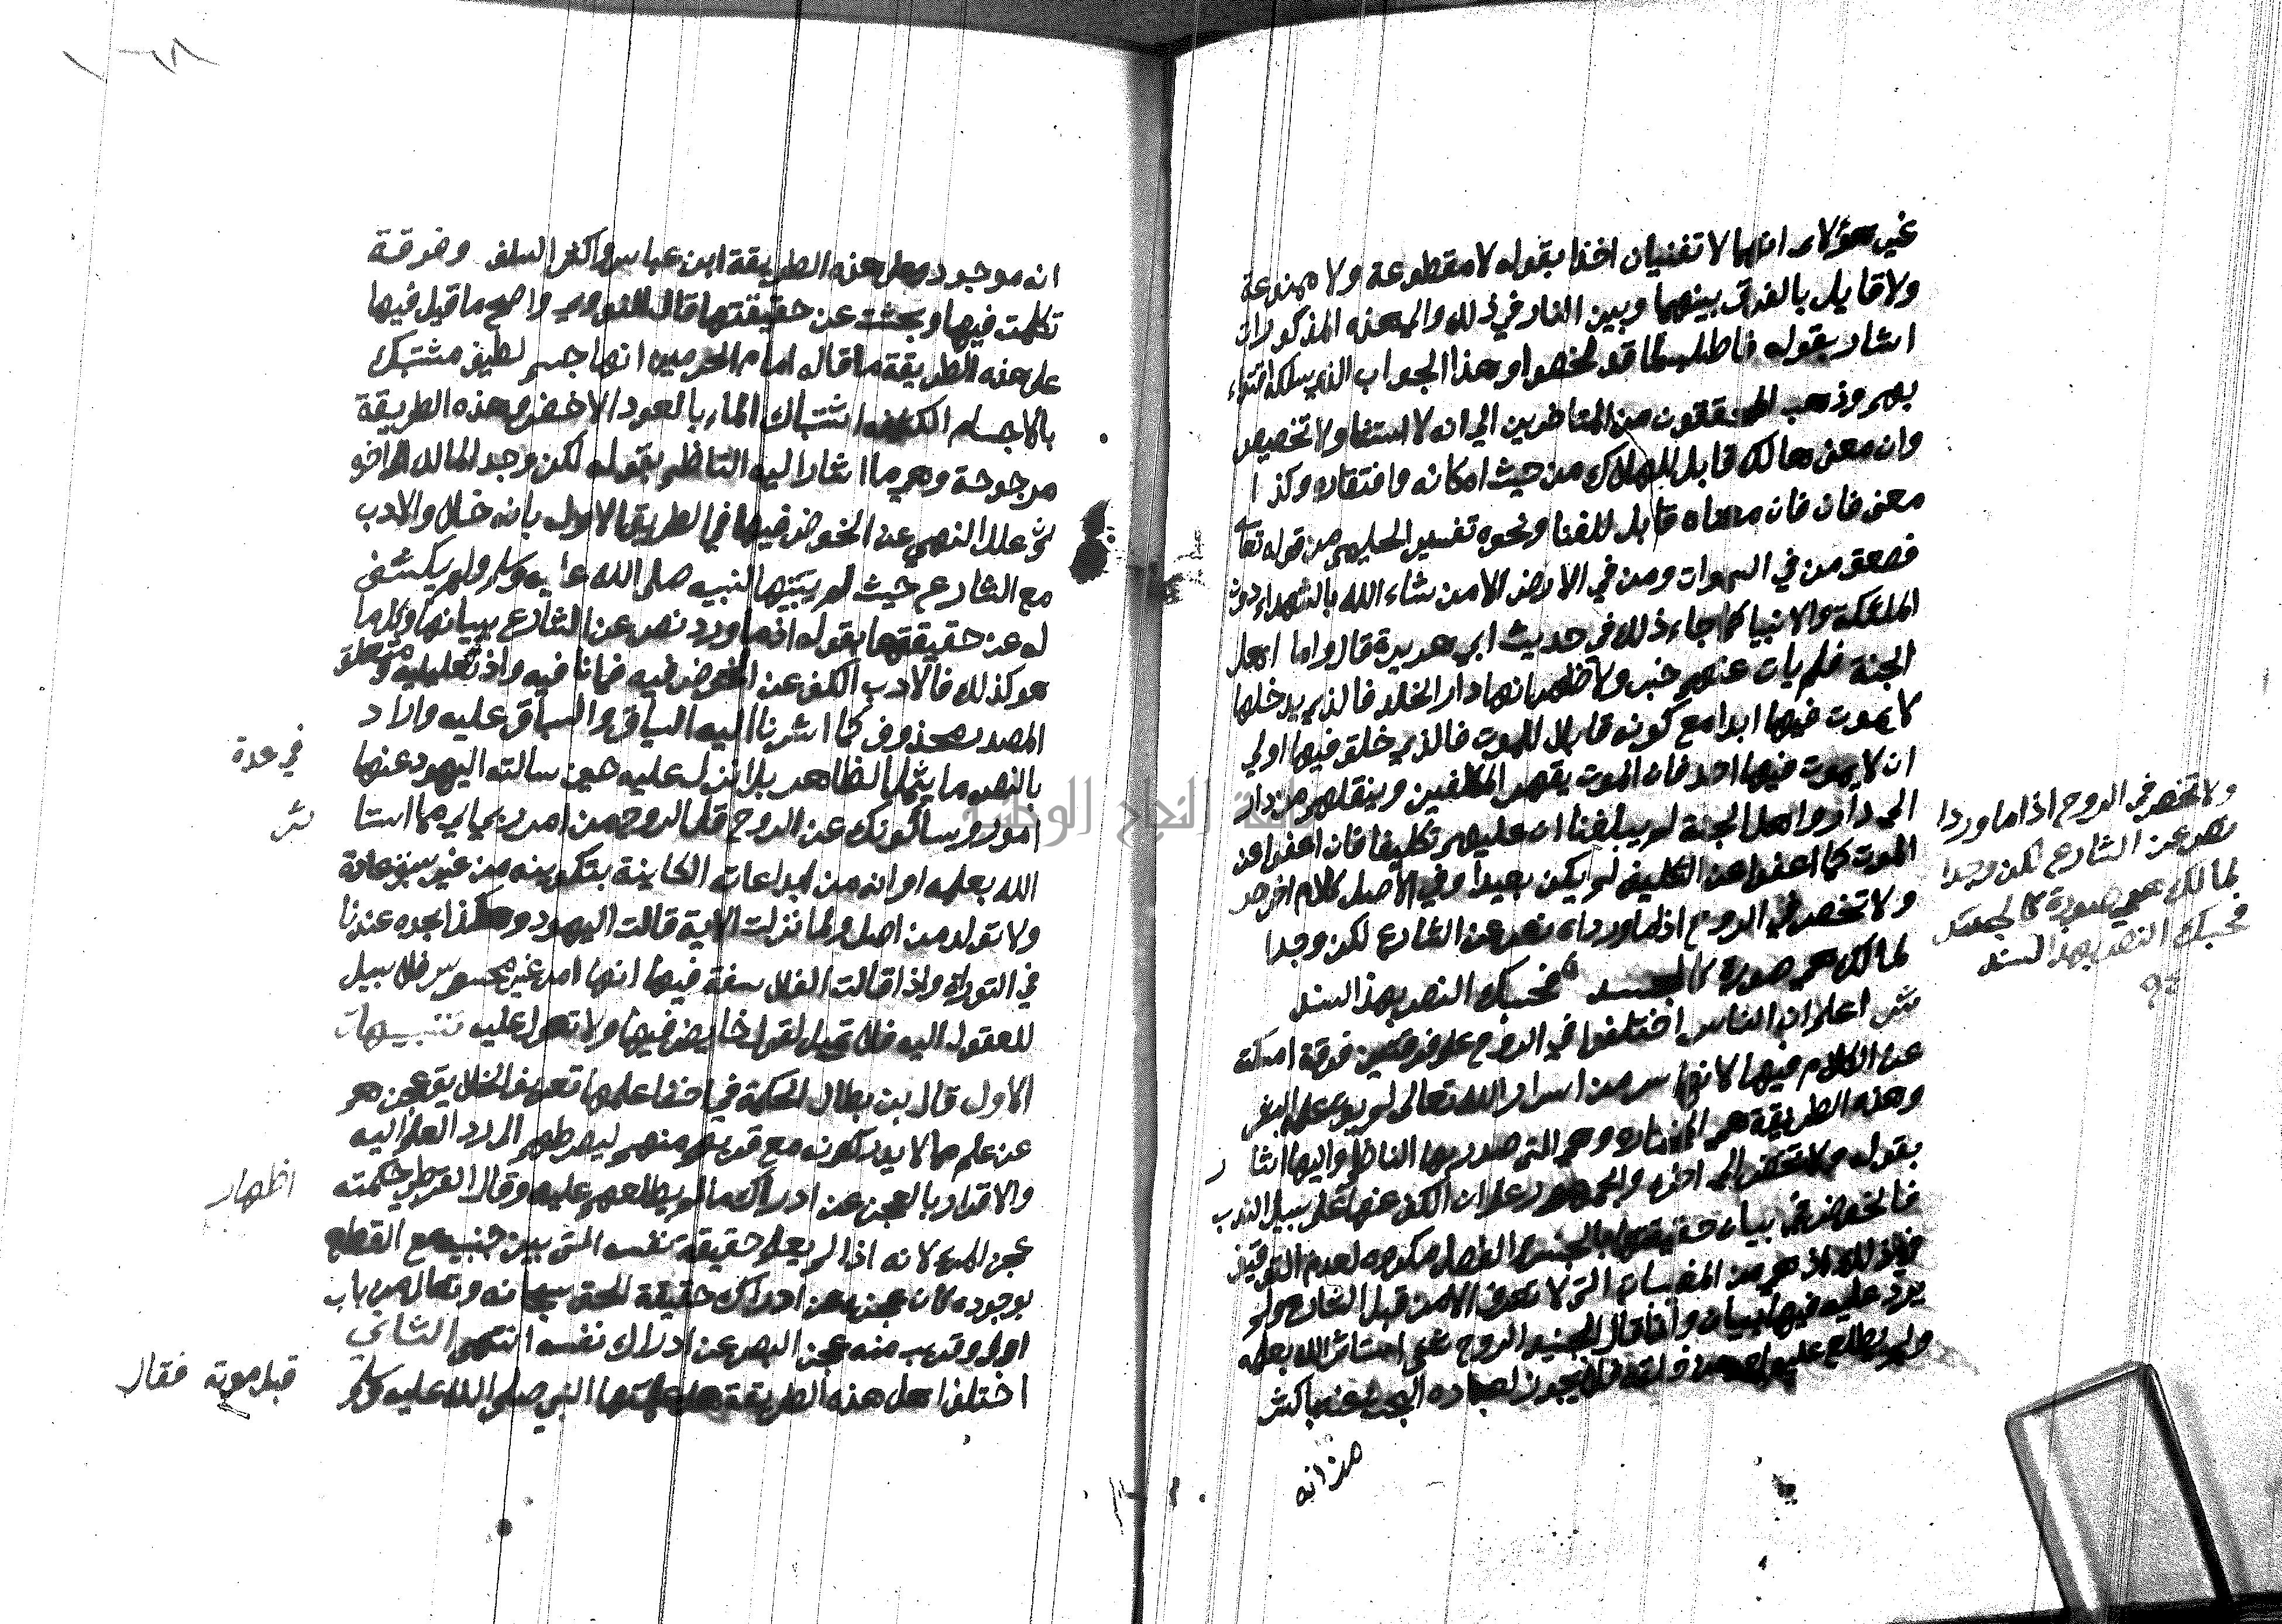 غير هؤلاء انهما لا تفنيان اخذا بقوله لا مقطوعة ولا ممنوعة
ولا قايل بالفرق بينهما وبين النار في ذلك والى هذه المذكورات
اشار بقوله فاطلب لما قد لخصوا وهذا الجواب الذي سلكه
بهم وذهب المحققون من المتاخرين الى انه لا استثنا ولا تخصيص
وان معنى هالك قابل للهلاك من حيث امكانه وافتقاره وكذا
معنى فان فان معناه قابل للفنا ونحوه تفسير الحليمي من قوله تعا
فصعق من في السموات ومن في الارض الا من شاء الله بالشهداء دون
الملئكة والانبيا كما جاء ذلك في حديث ابي هريرة قال واما اهل
الجنة فلم يات عنهم خبر والاظهر انها دار الخلد فالذي يدخلها
لا يموت فيها ابدا مع كونه قابلا للموت فالذي خلق فيها اولى
ان لا يموت فيها احد فان الموت يقهر المكلفين وينقلهم من دار
الى دار واهل الجنة لم يبلغنا ان عليهم تكليفا فان اعفوا عن
الموت كما اعفوا عن التكليف لم يكن بعيدا وفي الاصل كلام اخر ص
ولا تخض في الروح اذ ما وردا نص عن الشارع لكن وجدا
لمالك هي صورة كالجسد فحسبك النص بهذا السند
ش اعلم ان الناس اختلفوا في الروح على فرقتين فرقة امسكت
عن الكلام فيها لانها سر من اسرار الله تعالى لم يؤت علمه البشر
وهذه الطريقة هي المختارة وهي التي صدر بها الناظم واليها اشار
بقوله ولا تخض الى اخره والجمهور على ان الكف عنها على سبيل الندب
فالخوض في بيان حقيقتها بالجنس والفصل مكروه لعدم التوقيف
في ذلك اذ هي من المغيبات التي لا تعرف الا من قبل الشارع ولم
يرد عليه فيها بيان ولذا قال الجنيد الروح شئ استاثر الله بعلمه
ولم يطلع عليه احد من خلقه فلا يجوز لعباده البحث عنه باكثر
من انه
ولا تخض في الروح اذا ما وردا
نص عن الشارع لكن وجدا
لمالك هي صورة كالجسد
فحسبك النص بهذا السند
انه موجود وعلى هذه الطريقة ابن عباس واكثر السلف وفرقة
تكلمت فيها وبحثت عن حقيقتها قال النووي واصح ما قيل فيها
على هذه الطريقة ما قاله امام الحرمين انها جسم لطيف مشتبك
بالاجسام الكثيفة اشتباك الماء بالعود الاخضر وهذه الطريقة
مرجوحة وهي ما اشار اليه الناظم بقوله لكن وجد لمالك الى اخره
ثم علل النهي عن الخوض فيها في الطريق الاول بانه خلاف الادب
مع الشارع حيث لم يبينها لنبيه صلى الله عليه وسلم ولم يكشف
له عن حقيقتها بقوله اذ ما ورد نص عن الشارع ببيانها وكلما
هو كذلك فالادب الكف عن الخوض فيه فما نافيه واذ تعليلية ومتعلق
المصدر محذوف كما اشرنا اليه السياق والسباق عليه واراد
بالنص ما يشمل الظاهر بل انزل عليه حين سالته اليهود عنها
في عدة
امور ويسألونك عن الروح قل الروح من امر ربي اي مما استا
ثر
الله بعلمه او انه من ابداعات الكاينة بتكوينه من غير سبق مادة
ولا تولد من اصل ولما نزلت الاية قالت اليهود وهكذا نجده عندنا
في التوراة ولذا قالت الفلاسفة فيها انها امر غير محسوس فلا سبيل
للعقول اليه فلا تميل لقول خايض فيها ولا تعول عليه تنبيهات
الاول قال بن بطال الحكمة في اخفا علمها تعريف الخلايق عجزهم
عن علم ما لا يدركونه مع قربه منهم ليضطرهم الى رد العلم اليه
والاقرار بالعجز عن ادراك ما لم يطلعهم عليه وقال القرطبي حكمته
اظهار
عجز المرء لانه اذا لم يعلم حقيقة نفسه التي بين جنبيه مع القطع
بوجوده كان عجزه عن ادراك حقيقة الحق سبحانه وتعالى من باب
اولى وقريب منه عجز البصر عن ادراك نفسه انتهى الثاني
اختلف اهل هذه الطريقة هل علمها النبي صلى الله عليه وسلم
قبل موته فقال